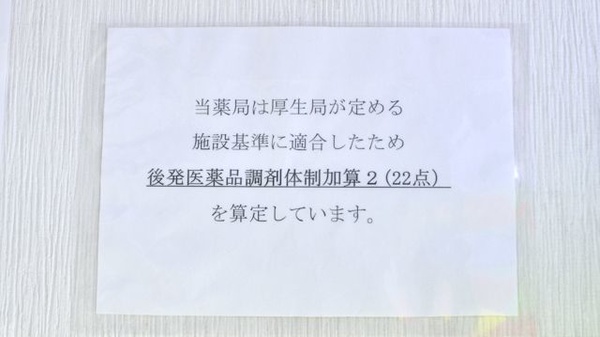 当薬局は厚生局が定める
施設基準に適合したため
後発医薬品調剤体制加算２(22点)
を算定しています。